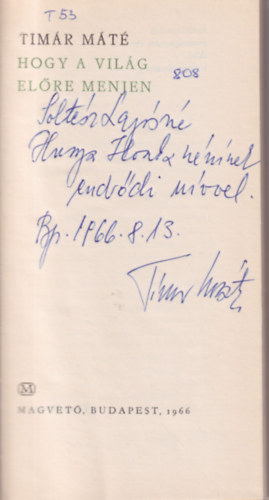 T 53
TIMÁR MÁTÉ
HOGY A VILÁG
808
ELŐRE MENJEN
Soltész Lajosné
Hunya Ilonka néninek
endrődi szívvel.
Bp. 1966. 8. 13.
Timár Máté
M
MAGVETŐ, BUDAPEST, 1966